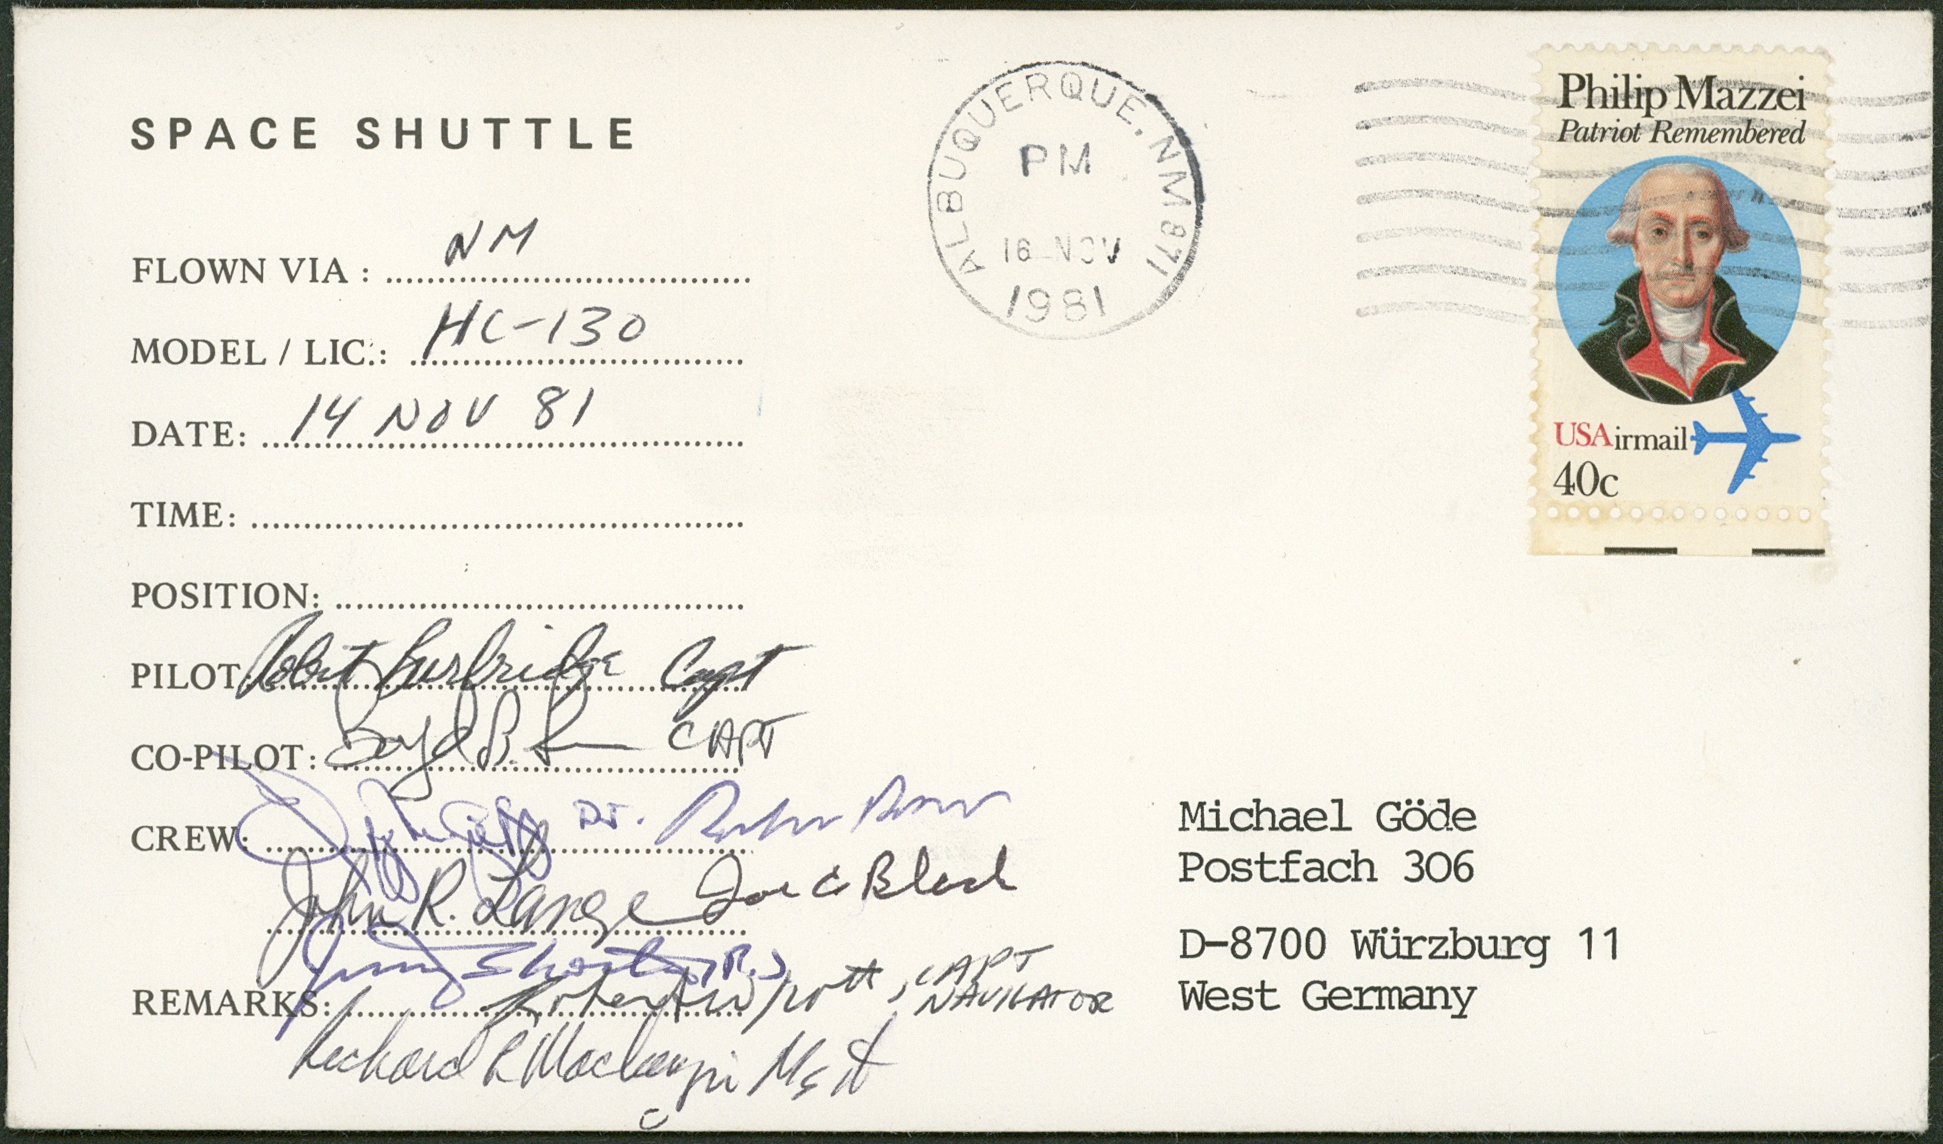 SPACE SHUTTLE
FLOWN VIA : NM
MODEL / LIC.: HC-130
DATE: 14 NOV 81
TIME:
POSITION:
PILOT Robert Burbridge Capt
CO-PILOT: Boyd B. CAPT
CREW:
John R. Lange Joe C Black
REMARKS: , CAPT
NAVIGATOR
Richard R Mackenzie MSgt
ALBUQUERQUE, NM 871
PM
16 NOV
1981
Philip Mazzei
Patriot Remembered
USAirmail
40c
Michael Göde
Postfach 306
D-8700 Würzburg 11
West Germany